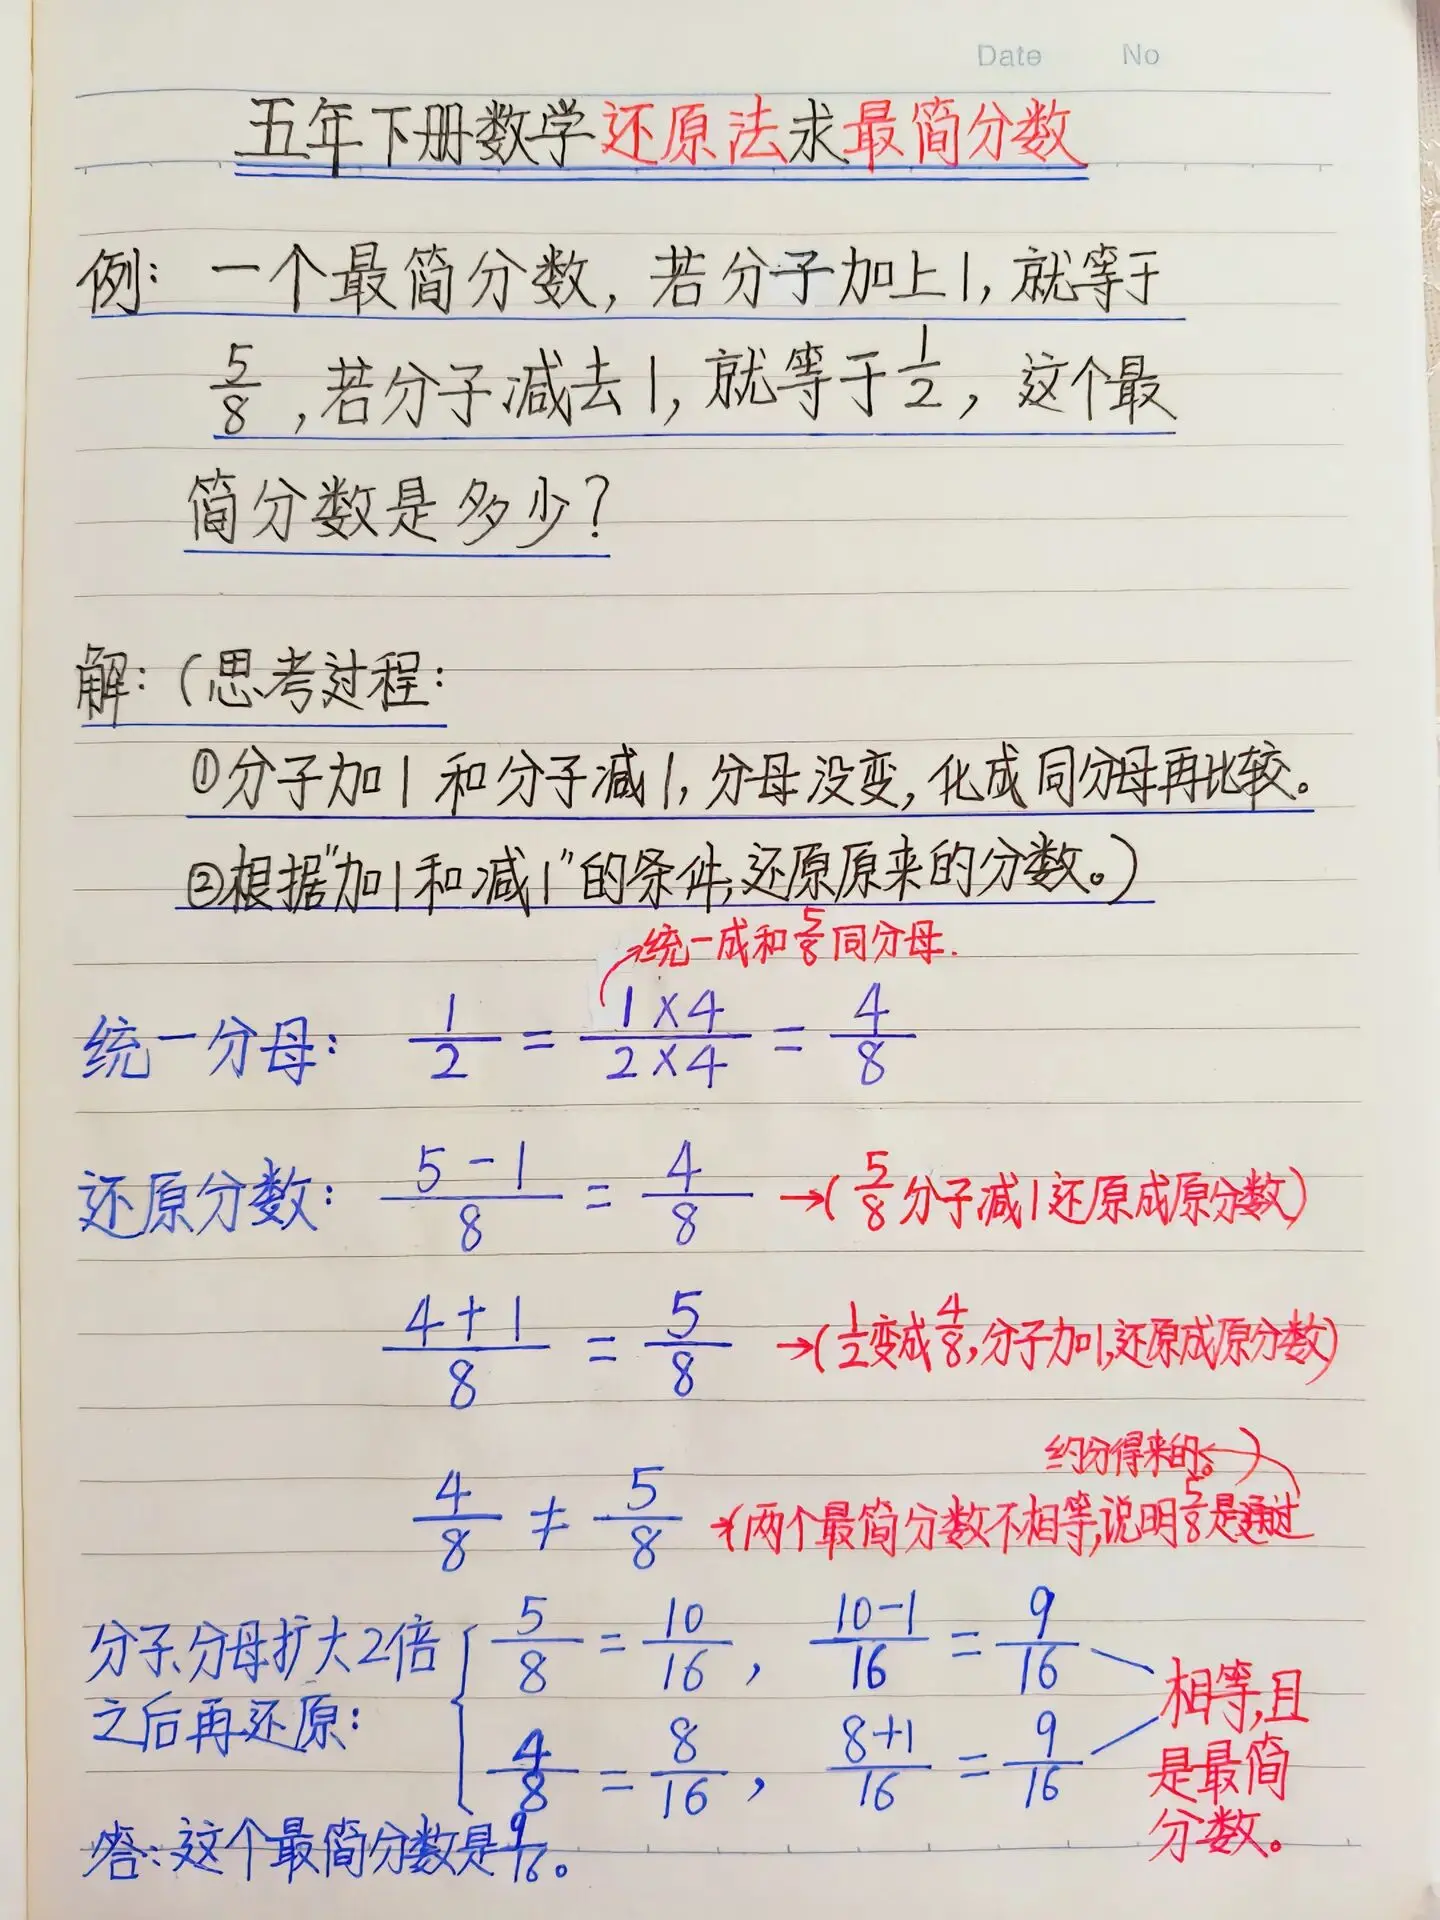 Date No
五年下册数学还原法求最简分数
例：一个最简分数，若分子加上1，就等于
5/8，若分子减去1，就等于1/2，这个最
简分数是多少？
解：（思考过程：
①分子加1和分子减1，分母没变，化成同分母再比较。
②根据"加1和减1"的条件，还原原来的分数。）
统一成和5/8同分母.
统一分母： 1/2 = 1×4/2×4 = 4/8
还原分数： 5-1/8 = 4/8 →（5/8分子减1还原成原分数）
4+1/8 = 5/8 →（1/2变成4/8，分子加1，还原成原分数）
4/8 ≠ 5/8 →（两个最简分数不相等，说明5/8是通过
约分得来的。）
分子、分母扩大2倍
之后再还原：
5/8 = 10/16， 10-1/16 = 9/16
4/8 = 8/16， 8+1/16 = 9/16
相等，且
是最简
分数。
答：这个最简分数是9/16。